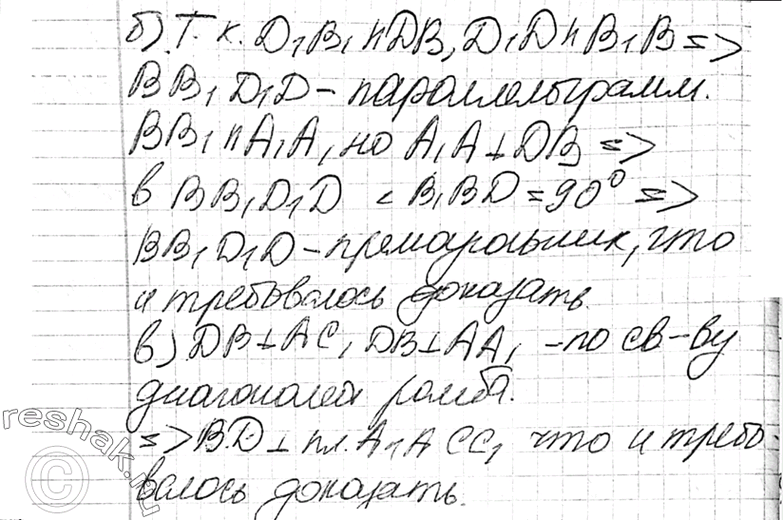 б) Т. к. D₁B₁ ∥ DB, D₁D ∥ B₁B =>
BB₁D₁D – параллелограмм.
BB₁ ∥ A₁A, но A₁A ⊥ DB =>
в BB₁D₁D ∠B₁BD = 90° =>
BB₁D₁D – прямоугольник, что
и требовалось доказать.
в) DB ⊥ AC, DB ⊥ AA₁ – по св-ву
диагоналей ромба.
=> BD ⊥ пл. A₁ACC₁ что и требо-
валось доказать.
reshak.ru
©